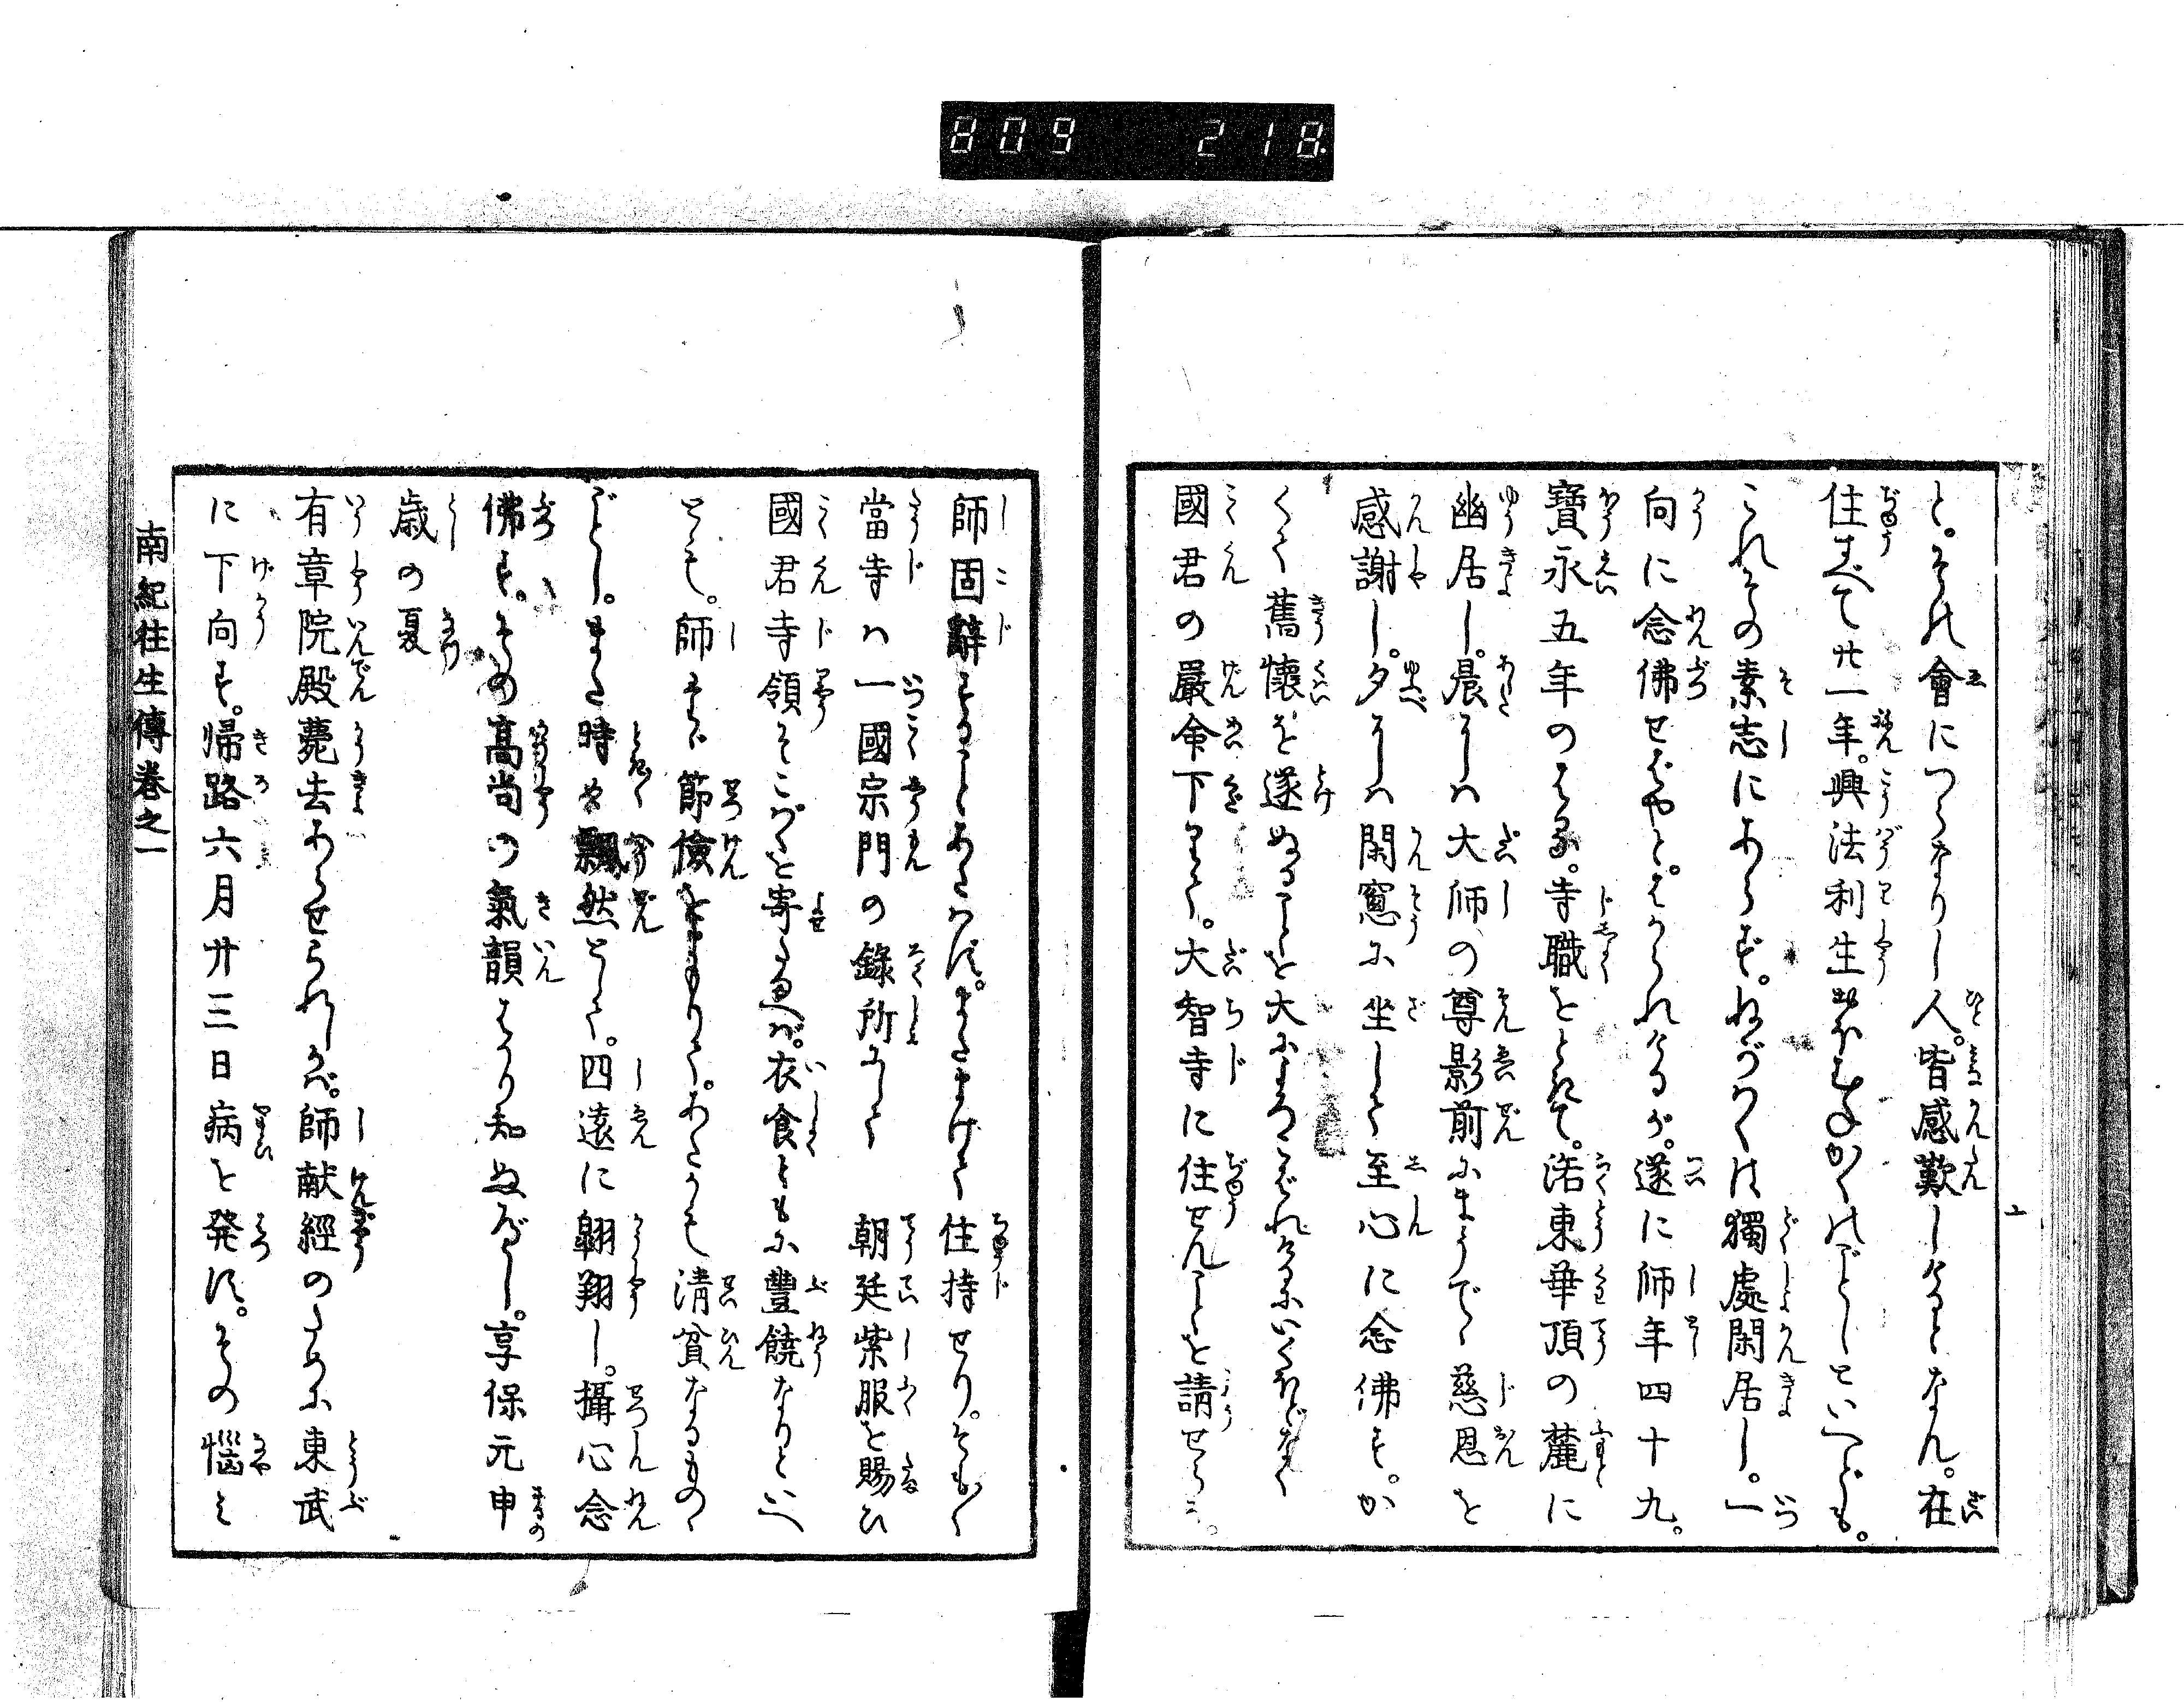 809 218
と。それ會につらなりし人。皆感歎しけるとなん。在
住すべて廿一年。興法利生おほむねかくのごとしといへども。
これその素志にあらず。ねがわくは獨處閑居し。一
向に念佛せばやと。はかられけるが。遂に師年四十九。
寳永五年のはる。寺職をとれて。洛東華頂の麓に
幽居し。晨には大师の尊影前にまうでゝ慈恩を
感謝し。夕には閑窓に坐して至心に念佛す。か
くて舊懷を遂ぬることを大によろこばれけるにいくほどなく
國君の嚴命下りて。大智寺に住せんことを請せらる。
師固辭するにあたはず。またまげて住持せり。そも〱
當寺ハ一國宗門の錄所にして 朝廷紫服を賜ひ
國君寺領そこばくを寄たまへば。衣食ともに豊饒なりといへ
ども。師たゞ節儉をまもりて。あたかも清貧なるものゝ
ごとし。また時々飄然として。四遠に翺翔し。攝心念
佛す。その高尚の氣韻はかり知ぬべし。享保元申
歳の夏
有章院殿薨去あらせられしかば。師献經のために東武
に下向す。帰路六月廿三日病を発す。その惱み
南紀往生傳巻之一